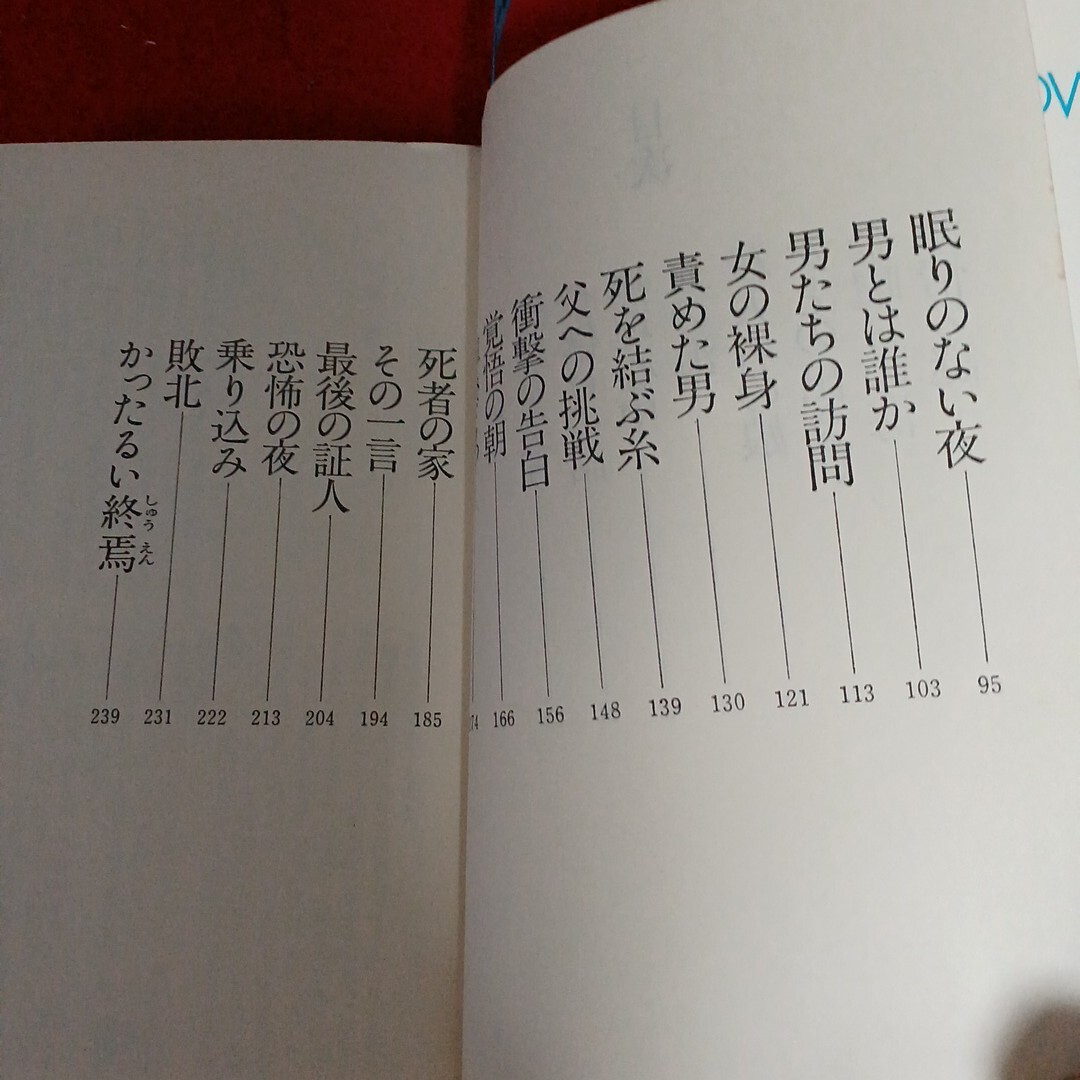 眠りのない夜 95
男とは誰か 103
男たちの訪問 113
女の裸身 121
責めた男 130
死を結ぶ糸 139
父への挑戦 148
衝撃の告白 156
覚悟の朝 166
死者の家 185
その一言 194
最後の証人 204
恐怖の夜 213
乗り込み 222
敗北 231
かったるい終焉 しゅうえん 239